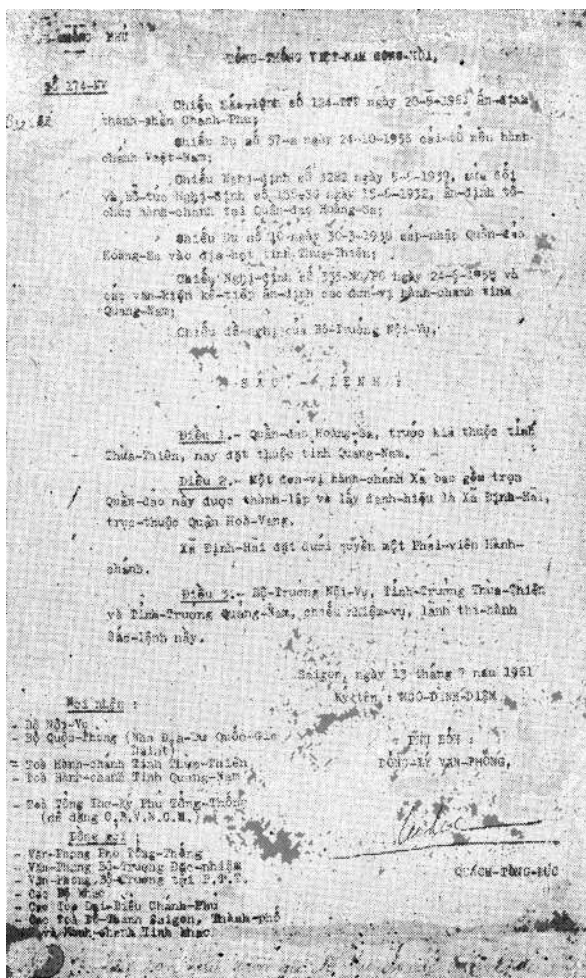 PHỦ
TỔNG-THỐNG VIỆT-NAM CỘNG-HÒA,
Số 174-NV
Chiếu Sắc-lệnh số 124-TTP ngày 28-5-1961 ấn-định
thành-phần Chánh-Phủ;
Chiếu Dụ số 57-a ngày 24-10-1956 cải-tổ nền hành-
chánh Việt-Nam;
Chiếu Nghị-định số 3282 ngày 5-5-1939, sửa đổi
và bổ-túc Nghị-định số 156-SC ngày 15-6-1932, ấn-định tổ-
chức hành-chánh tại Quần-đảo Hoàng-Sa;
Chiếu Dụ số 10 ngày 30-3-1938 sáp-nhập Quần-đảo
Hoàng-Sa vào địa-hạt tỉnh Thừa-Thiên;
Chiếu Nghị-định số 335-NV/PC ngày 24-6-1958 và
các văn-kiện kế-tiếp ấn-định các đơn-vị hành-chánh tỉnh
Quảng-Nam;
Chiếu đề-nghị của Bộ-Trưởng Nội-Vụ,
SẮC - LỆNH :
Điều 1.- Quần-đảo Hoàng-Sa, trước kia thuộc tỉnh
Thừa-Thiên, nay đặt thuộc tỉnh Quảng-Nam.
Điều 2.- Một đơn-vị hành-chánh Xã bao gồm trọn
Quần-đảo này được thành-lập và lấy danh-hiệu là Xã Định-Hải,
trực-thuộc Quận Hoà-Vang.
Xã Định-Hải đặt dưới quyền một Phái-viên Hành-
chánh.
Điều 3.- Bộ-Trưởng Nội-Vụ, Tỉnh-Trưởng Thừa-Thiên
và Tỉnh-Trưởng Quảng-Nam, chiếu nhiệm-vụ, lãnh thi-hành
Sắc-lệnh này.
Saigon, ngày 13 tháng 7 năm 1961
Ký tên : NGÔ-ĐÌNH-DIỆM
Nơi nhận :
- Bộ Nội-Vụ
- Bộ Quốc-Phòng (Nha Địa-Dư Quốc-Gia
Dalat)
- Toà Hành-chánh Tỉnh Thừa-Thiên
- Toà Hành-chánh Tỉnh Quảng-Nam
- Toà Tổng Thơ-Ký Phủ Tổng-Thống
(để đăng C.B.V.N.C.H.)
PHÓ BỔN :
ĐỔNG-LÝ VĂN-PHÒNG,
QUÁCH-TÒNG-ĐỨC
Đồng gởi :
- Văn-Phòng Phủ Tổng-Thống
- Văn-Phòng Bộ-Trưởng Đặc-nhiệm
- Văn-Phòng Bộ-Trưởng tại P.T.T.
- Các Bộ khác
- Các Toà Đại-Biểu Chánh-Phủ
- Các Toà Đô-Thành Saigon, Thành-phố
và Hành-chánh Tỉnh khác